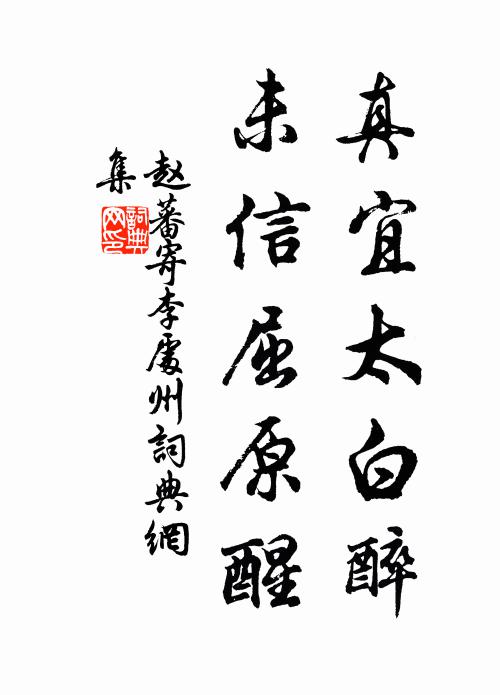 真宜太白醉
未信屈原醒
赵蕃寄李處州詞典網
集
詞典网印